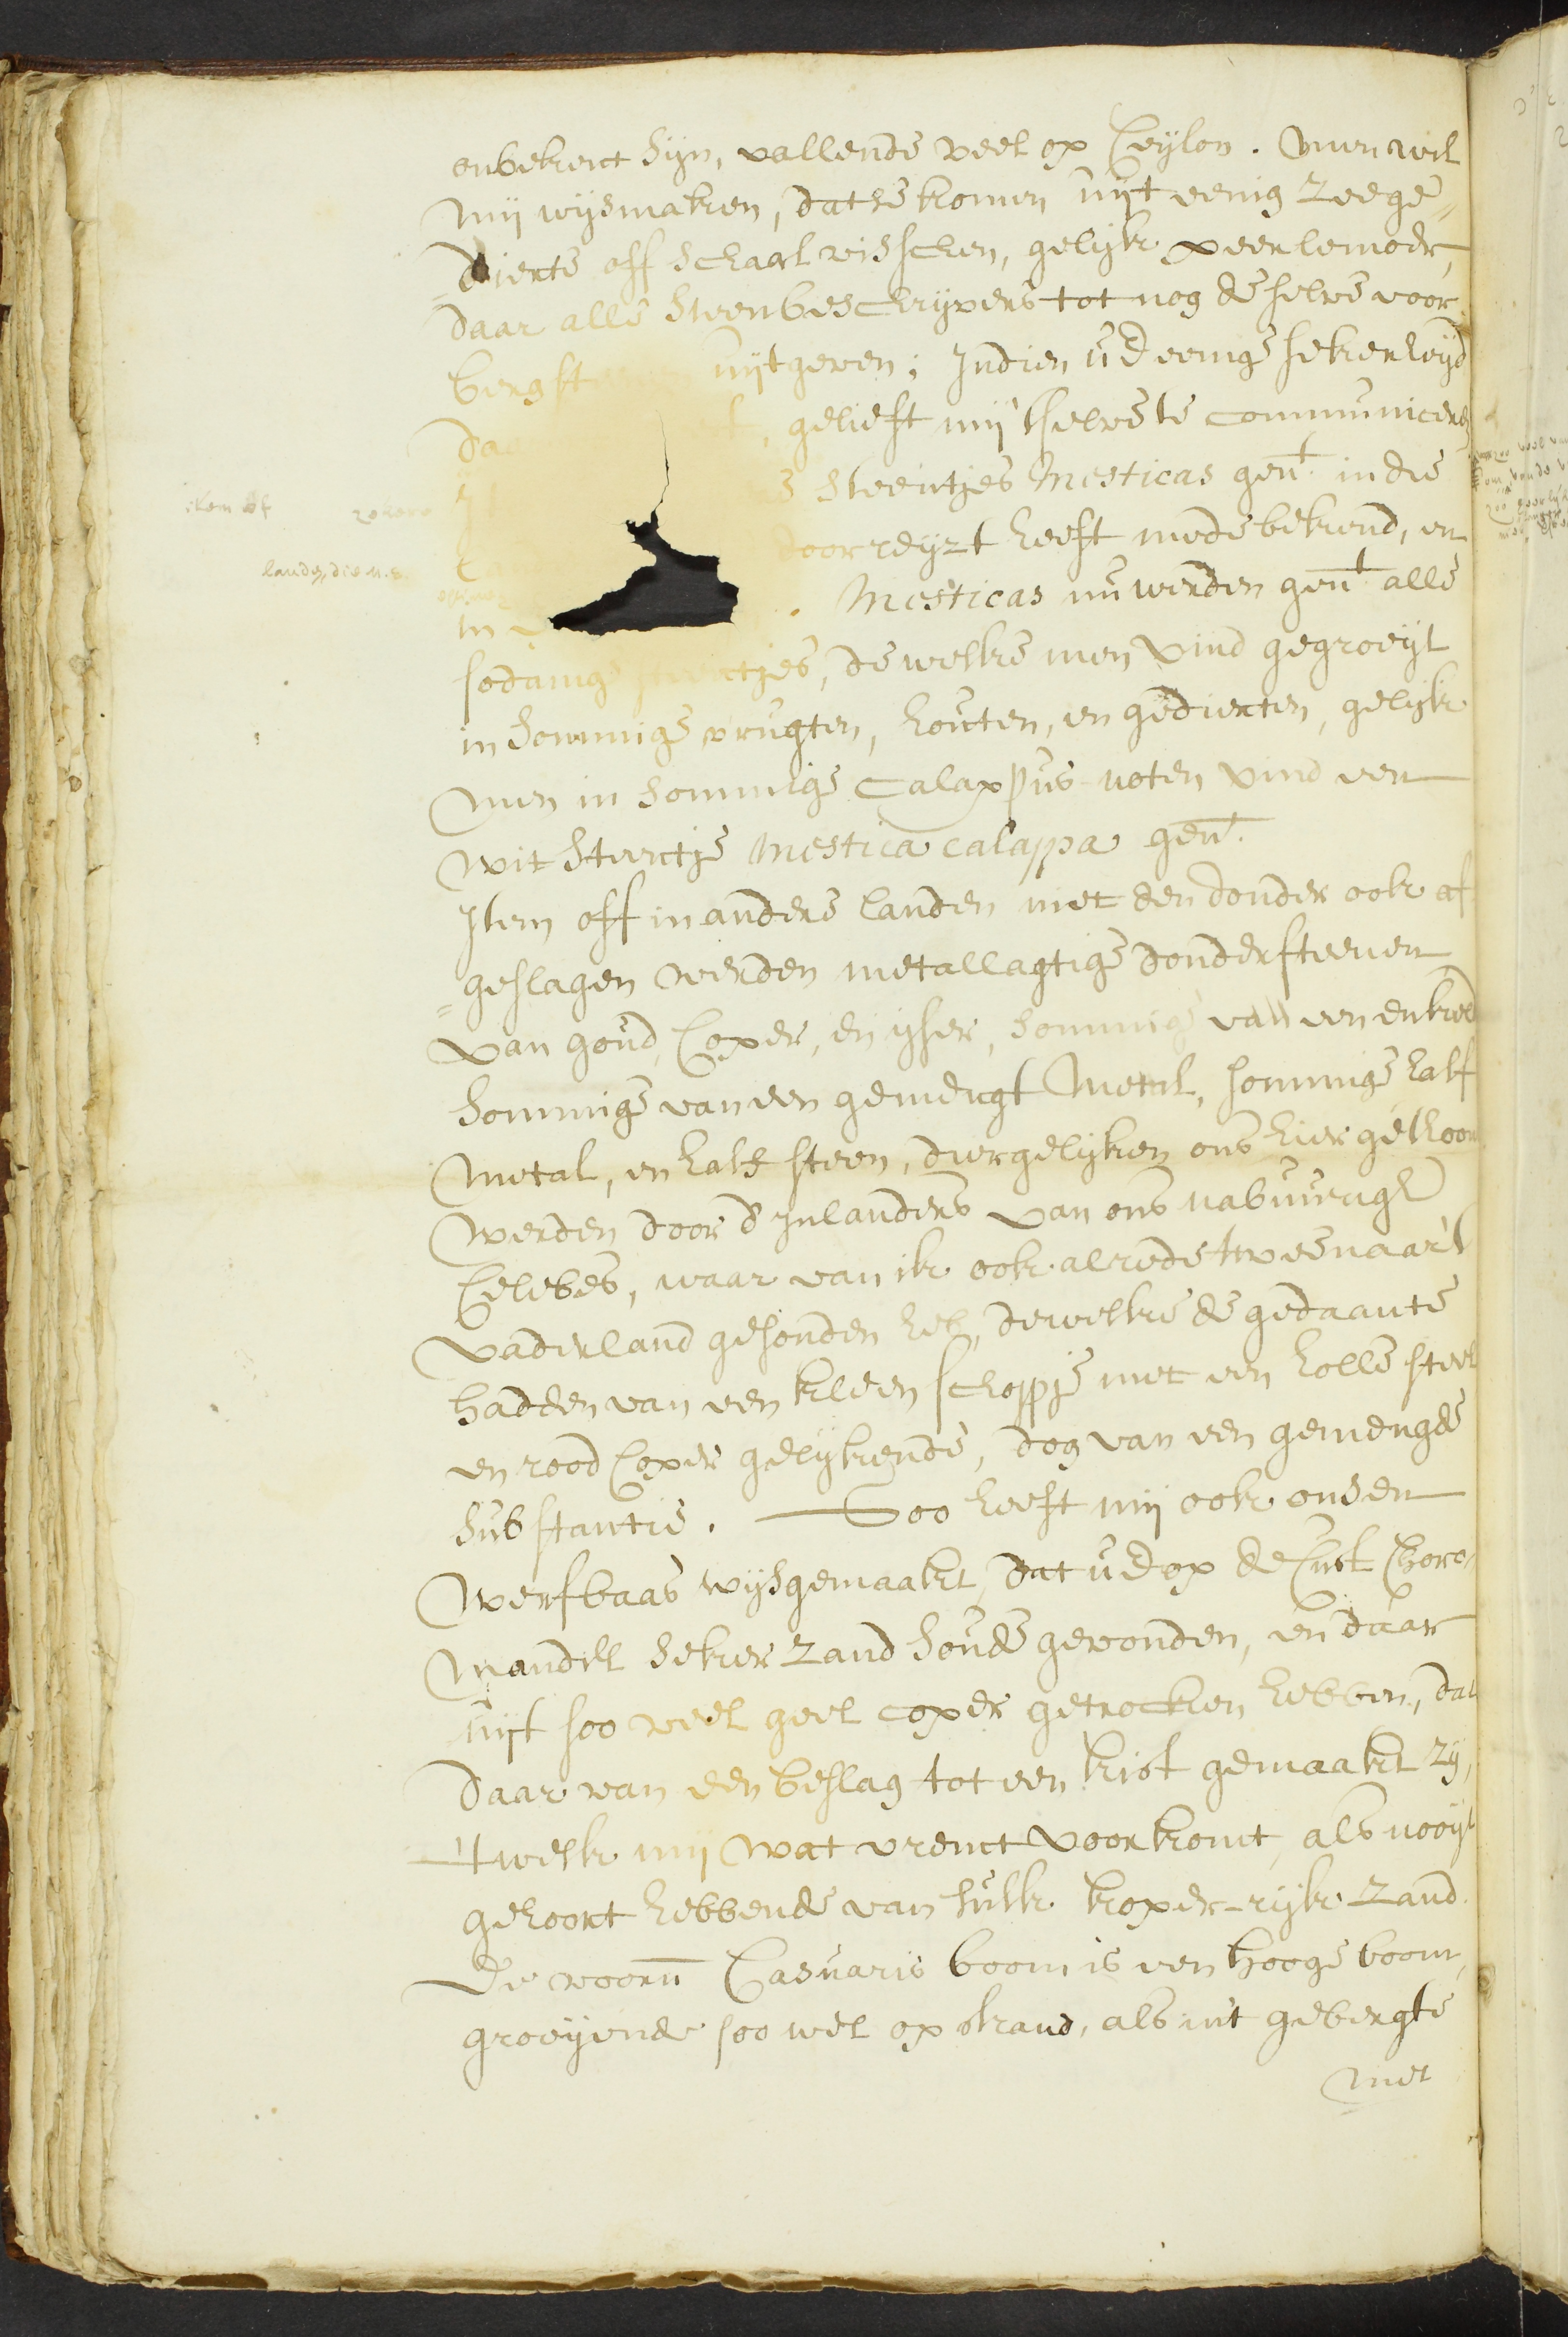 onbekent sijn, vallende veel op Ceylon. Men wil
mij wijsmaken, dat se komen uijt eenig Zeege„
„dierte off schaalvisschen, gelijk peerlemoer,
daar alle steenbeschrijvers tot nog deselve voor
bergsteenen uijtgeven; Indien UE eenige sekerheijd
daar gelieft mij 'tselve te communiceren
steentjes Mesticas gent. in die
doorreyzt heeft mede bekend, en
Mesticas nu werden gent. alle
sodanige steentjes, de welke men vind gegroeijt
in sommige vrugten, houten, en gedierten, gelijk
men in sommige Calappus-noten vind een
wit steentje Mestica calappa gent.
Item off in andere landen met den donder ook af
„geslagen werden metallagtige dondersteenen
van goud, Coper, en ijser, sommige van een enkeld
sommige van een gemengt Metal, sommige half
Metal, en half steen, diergelijken ons hier gethoont
werden door d' Inlanders van ons nabuurige
Celebes, waar van ik ook alrede twee naar 't
vaderland gesonden heb, dewelke de gedaante
hadden van een kleen schopje met een holle steel
en rood Coper gelijkende, dog van een gemengde
substantie. Soo heeft mij ook onsen
werfbaas wijsgemaakt, dat UE op de Cust Choro„
mandel seker zand soude gevonden, en daar
uijt soo veel geel coper getrocken hebben, dat
daar van een beslag tot een kist gemaakt zij,
't welk mij wat vremt voorkomt, als nooijt
gehoort hebbende van sulk koper-rijk zand.
De voorn. Casuaris boom is een hooge boom,
groeijende soo wel op strand, als in 't gebergte
met